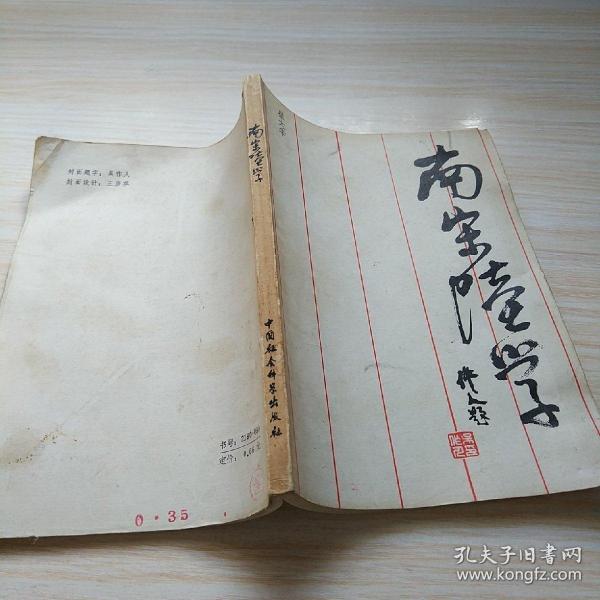 南宋陆学
作人题
南宋陆学
中国社会科学出版社
封面题字：吴作人
封面设计：王彦苹
书号：
定价：
0.35
孔夫子旧书网
www.kongfz.com